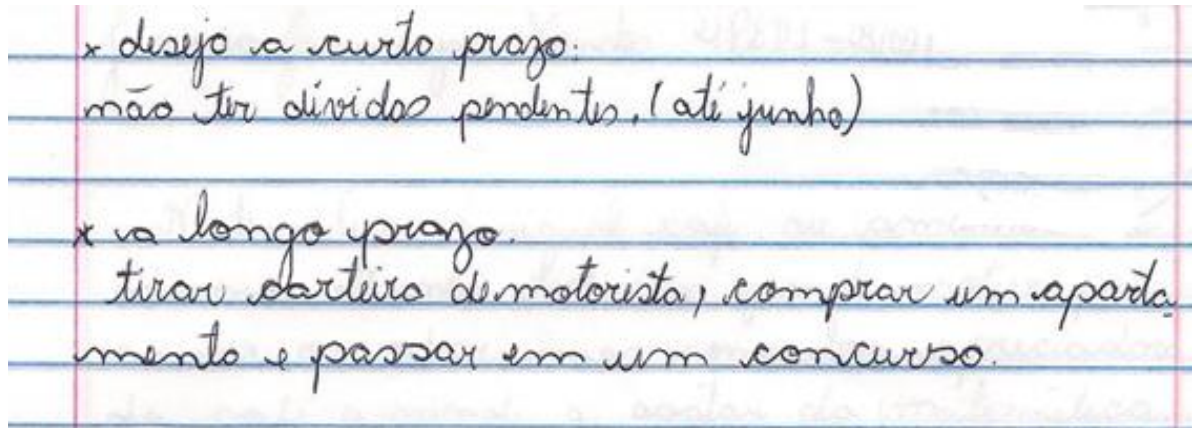 x desejo a curto prazo:
não ter dívidas pendentes. (até junho)
x a longo prazo.
tirar carteira de motorista, comprar um aparta-
mento e passar em um concurso.